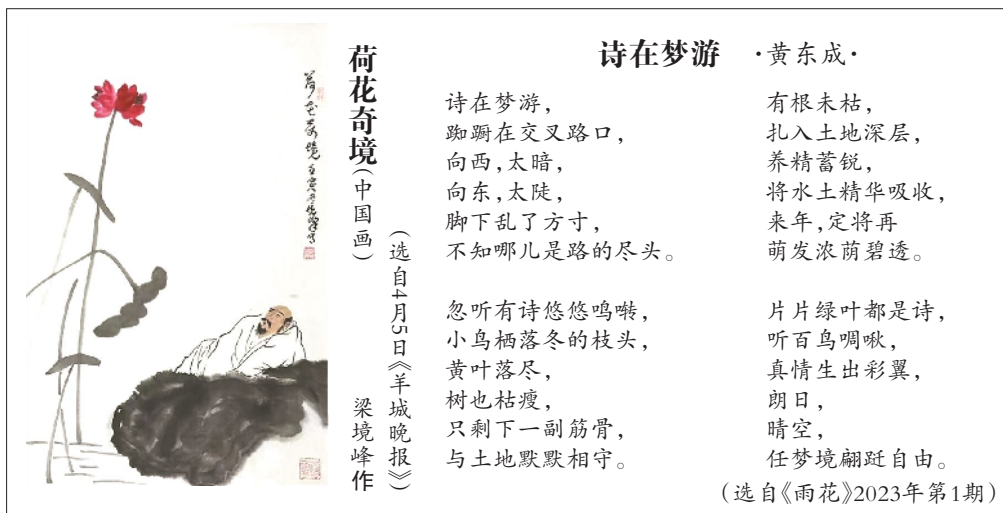 荷花奇境(中国画)
(选自4月5日《羊城晚报》)
梁境峰作
诗在梦游 ·黄东成·
诗在梦游，
踟蹰在交叉路口，
向西，太暗，
向东，太陡，
脚下乱了方寸，
不知哪儿是路的尽头。
忽听有诗悠悠鸣啭，
小鸟栖落冬的枝头，
黄叶落尽，
树也枯瘦，
只剩下一副筋骨，
与土地默默相守。
有根未枯，
扎入土地深层，
养精蓄锐，
将水土精华吸收，
来年，定将再
萌发浓荫碧透。
片片绿叶都是诗，
听百鸟啁啾，
真情生出彩翼，
朗日，
晴空，
任梦境翩跹自由。
(选自《雨花》2023年第1期)